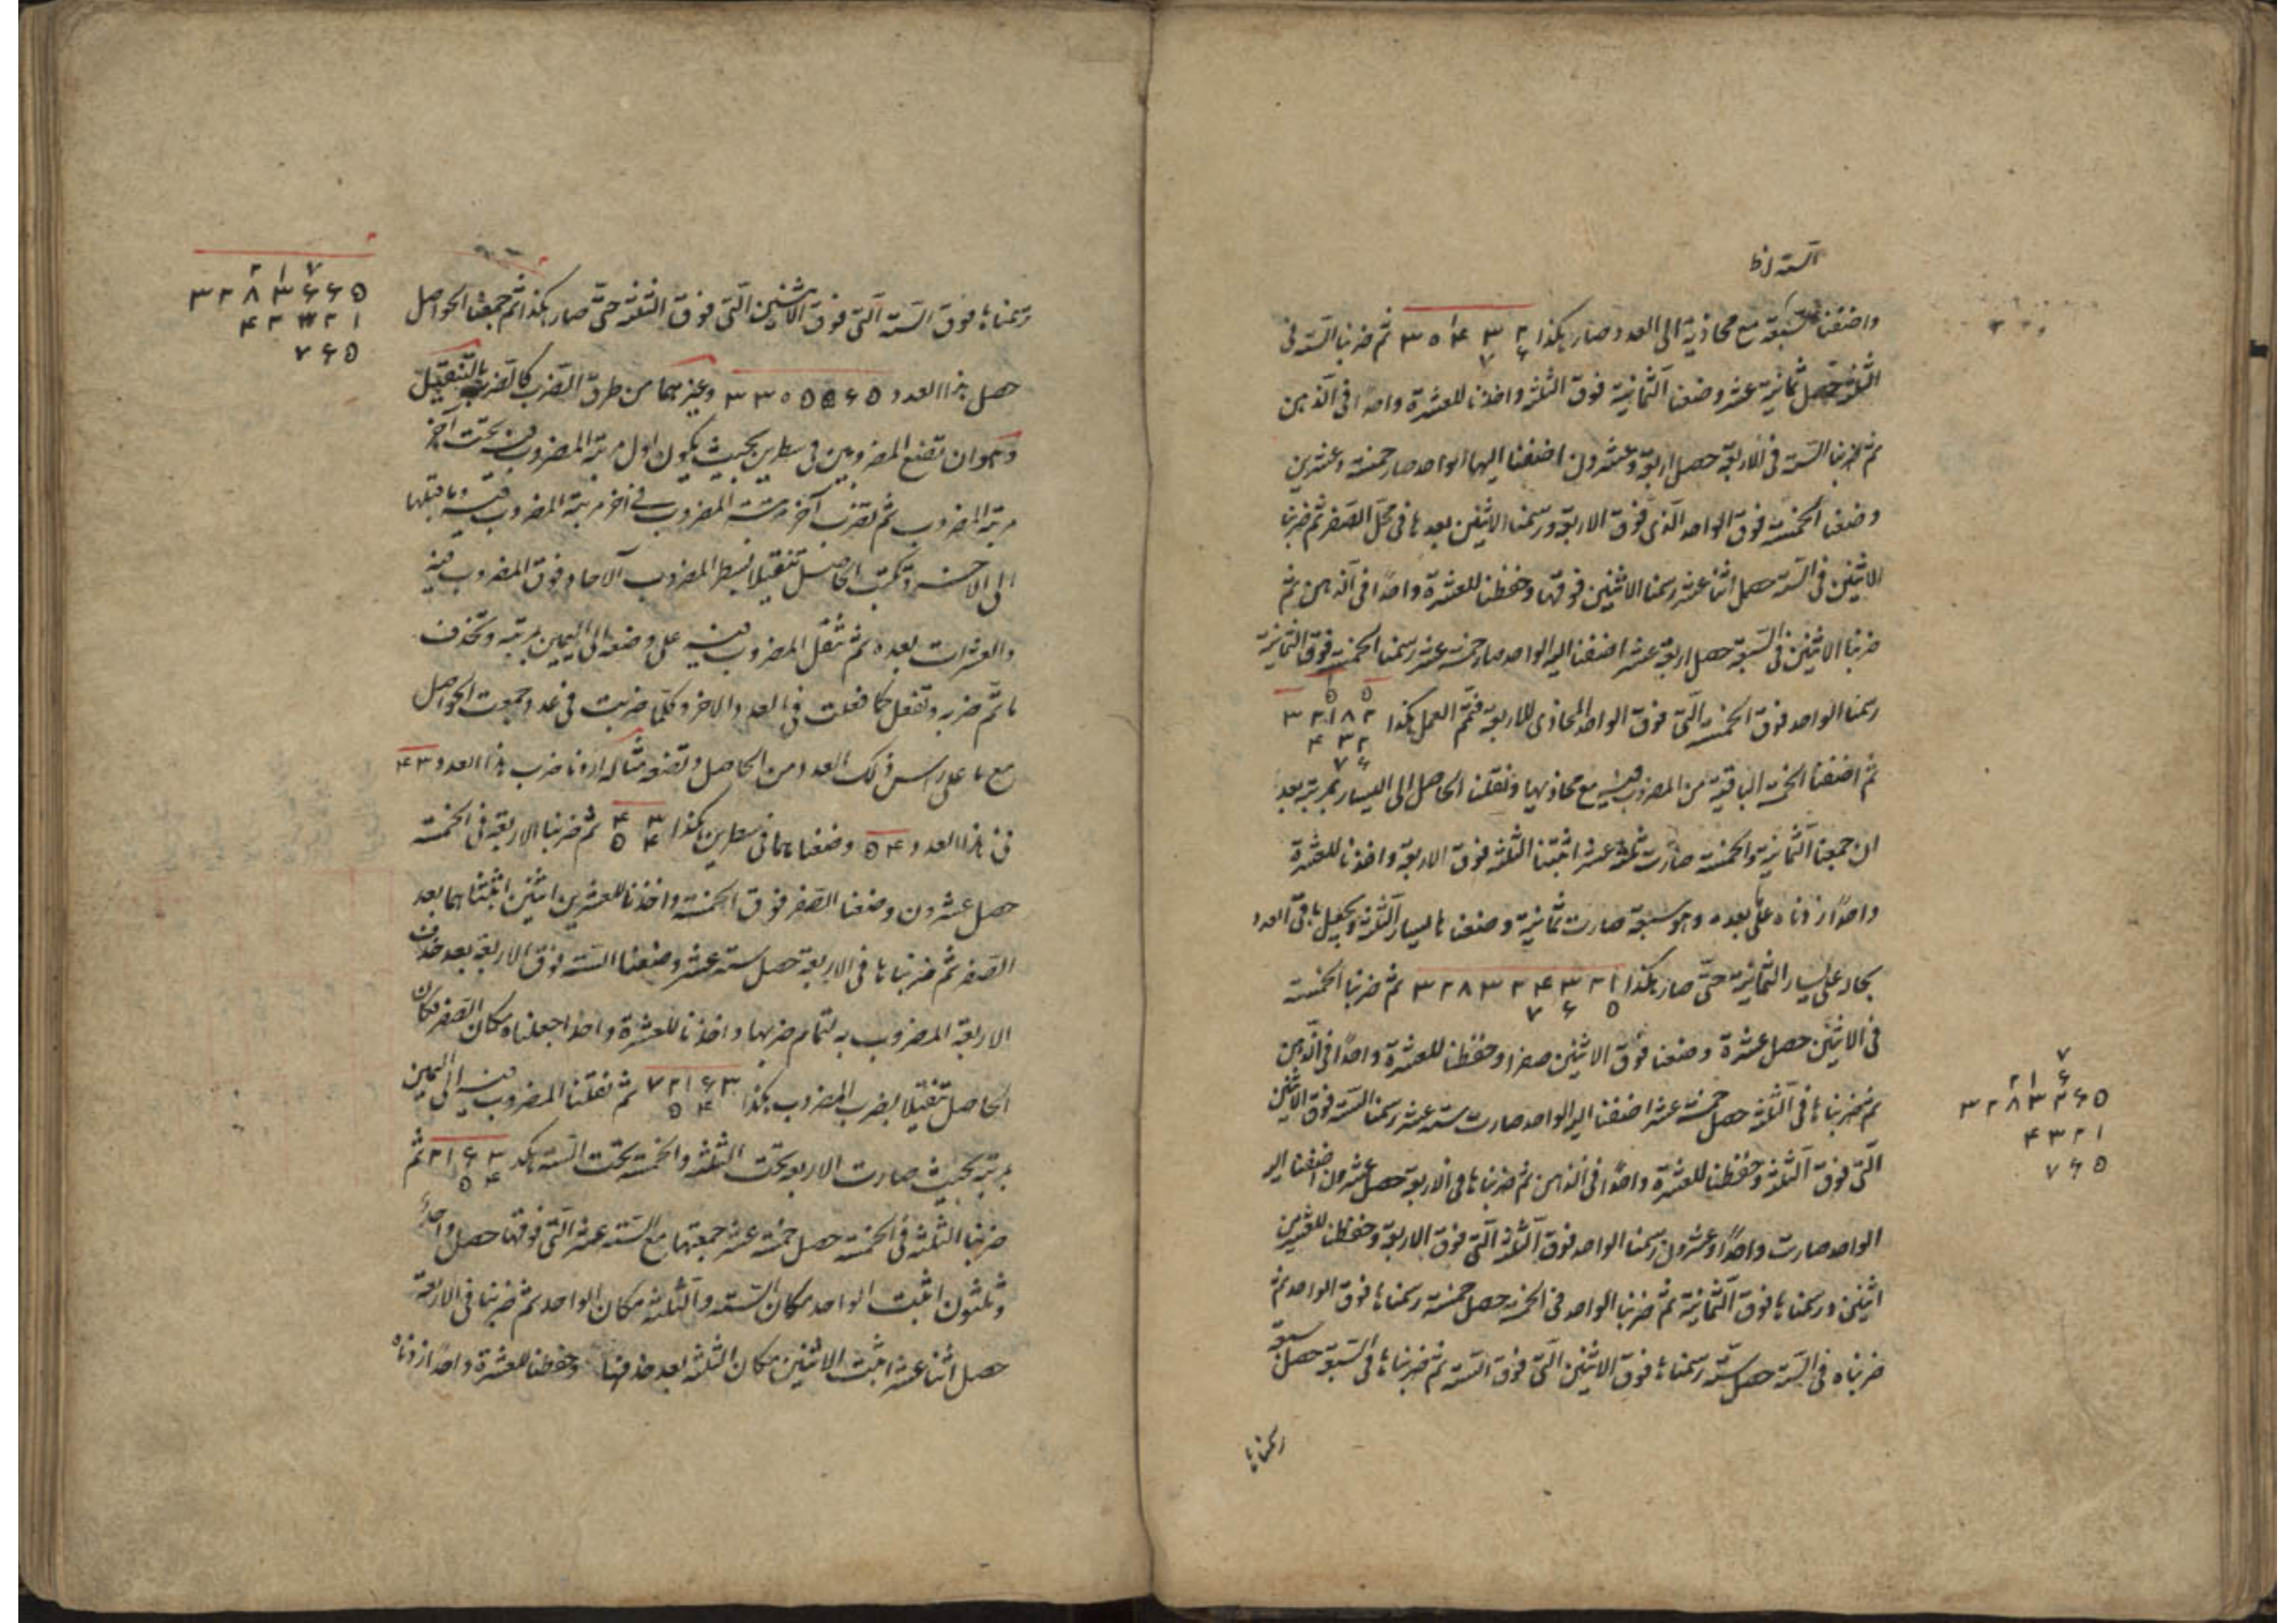 واضفنا السبعة مع محاذية الى العدد وصار هكذا ٣٠٤٣٢ ثم ضربنا الستة فى
الثلثة حصل ثمانية عشر وضعنا الثمانية فوق الثلثة واخذنا للعشرة واحدا فى الذهن
ثم ضربنا الستة فى الاربعة حصل اربعة وعشرون اضفنا اليها الواحد صار خمسة وعشرين
وضعنا الخمسة فوق الواحد الذى فوق الاربعة ورسمنا الاثنين بعدها فى محل الصفر ثم ضربنا
الاثنين فى الستة حصل اثنا عشر رسمنا الاثنين فوقها وحفظنا للعشرة واحدًا فى الذهن ثم
ضربنا الاثنين فى السبعة حصل اربعة عشر اضفنا اليه الواحد صار خمسة عشر رسمنا الخمسة فوق الثمانية
رسمنا الواحد فوق الخمسة التى فوق الواحد المحاذى للاربعة فتم العمل هكذا ٣٢١٨٢
٤٣٢
٧۶
ثم اضفنا الخمسة الباقية من المضروب فيه مع محاذيها ونقلنا الحاصل الى اليسار بمرتبة بعد
ان جمعنا الثمانية والخمسة صارت ثلثة عشر اثبتنا الثلثة فوق الاربعة واخذنا للعشرة
واحدًا زدناه على ما بعده وهو سبعة صارت ثمانية وضعناها ليسار الثلثة ويجعل باقى العدد
بحاله على يسار الثمانية حتى صار هكذا ٣٢٨٣٢۴٣٢١ ثم ضربنا الخمسة
٧ ۶ ٥
فى الاثنين حصل عشرة وضعنا فوق الاثنين صفرا وحفظنا للعشرة واحدًا فى الذهن
ثم ضربناها فى الثلثة حصل خمسة عشر اضفنا اليه الواحد صارت ستة عشر رسمنا الستة فوق الاثنين
التى فوق الثلثة وحفظنا للعشرة واحدًا فى الذهن ثم ضربناها فى الاربعة حصل عشرون اضفنا اليه
الواحد صارت واحدًا وعشرون رسمنا الواحد فوق الثلثة التى فوق الاربعة وحفظنا للعشرين
اثنين ورسمناها فوق الثمانية ثم ضربنا الواحد فى الخمسة حصل خمسة رسمناها فوق الواحد ثم
ضربناه فى الستة حصل ستة رسمناها فوق الاثنين التى فوق الستة ثم ضربناها فى السبعة حصل سبعة
رسمناها
٧
٢١ ۶
٣٢٨٣٢۶٥
۴٣٢١
٧۶٥
رسمناها فوق الستة التى فوق الاثنين التى فوق الثلثة حتى صار هكذا ثم جمعنا الحواصل
حصل هذا العدد ٣٣٠٥٥۶٥ وغيرهما من طرق الضرب كالضرب بالتنقيل
وهو ان تضع المضروبين فى سطرين بحيث يكون اول مرتبة المضروب فيه تحت آخر
مرتبة المضروب ثم تضرب آخر مرتبة المضروب فى آخر مرتبة المضروب فيه وما قبلها
الى الآخر وتكتب الحاصل تنقيلا بسطر المضروب الآحاد فوق المضروب فيه
والعشرات بعده ثم تنقل المضروب فيه على وضعه الى اليمين بمرتبة وتحذف
ما تم ضربه وتفعل كما فعلت فى العدد الاخر وكلما ضربت فى عدد جمعت الحواصل
مع ما على راس ذلك العدد من الحاصل وتضعه مثاله اردنا ضرب هذا العدد ۴٣
فى هذا العدد ٥۴ وضعناهما فى سطرين هكذا ۴٣ ثم ضربنا الاربعة فى الخمسة
٥۴
حصل عشرون وضعنا الصفر فوق الخمسة واخذنا للعشرين اثنين اثبتناهما بعد
الصفر ثم ضربناها فى الاربعة حصل ستة عشر وضعنا الستة فوق الاربعة بعد حذف
الاربعة المضروب به لتمام ضربها واخذنا للعشرة واحدا جعلناه مكان الصفر فكان
الحاصل تنقيلا بضرب المضروب هكذا ٢١۶٣ ثم نقلنا المضروب فيه الى اليمين
٥۴
بمرتبة بحيث صارت الاربعة تحت الثلثة والخمسة تحت الستة هكذا ٢١۶٣ ثم
٥۴
ضربنا الثلثة فى الخمسة حصل خمسة عشر جمعتها مع الستة عشر التى فوقها حصل واحد
وثلثون اثبت الواحد مكان الستة والثلثة مكان الواحد ثم ضربنا فى الاربعة
حصل اثنا عشر اثبت الاثنين مكان الثلثة بعد حذفها وحفظنا للعشرة واحدًا زدناه
٢١٧
٣٢٨٣۶۶٥
۴٣٢١
٧۶٥